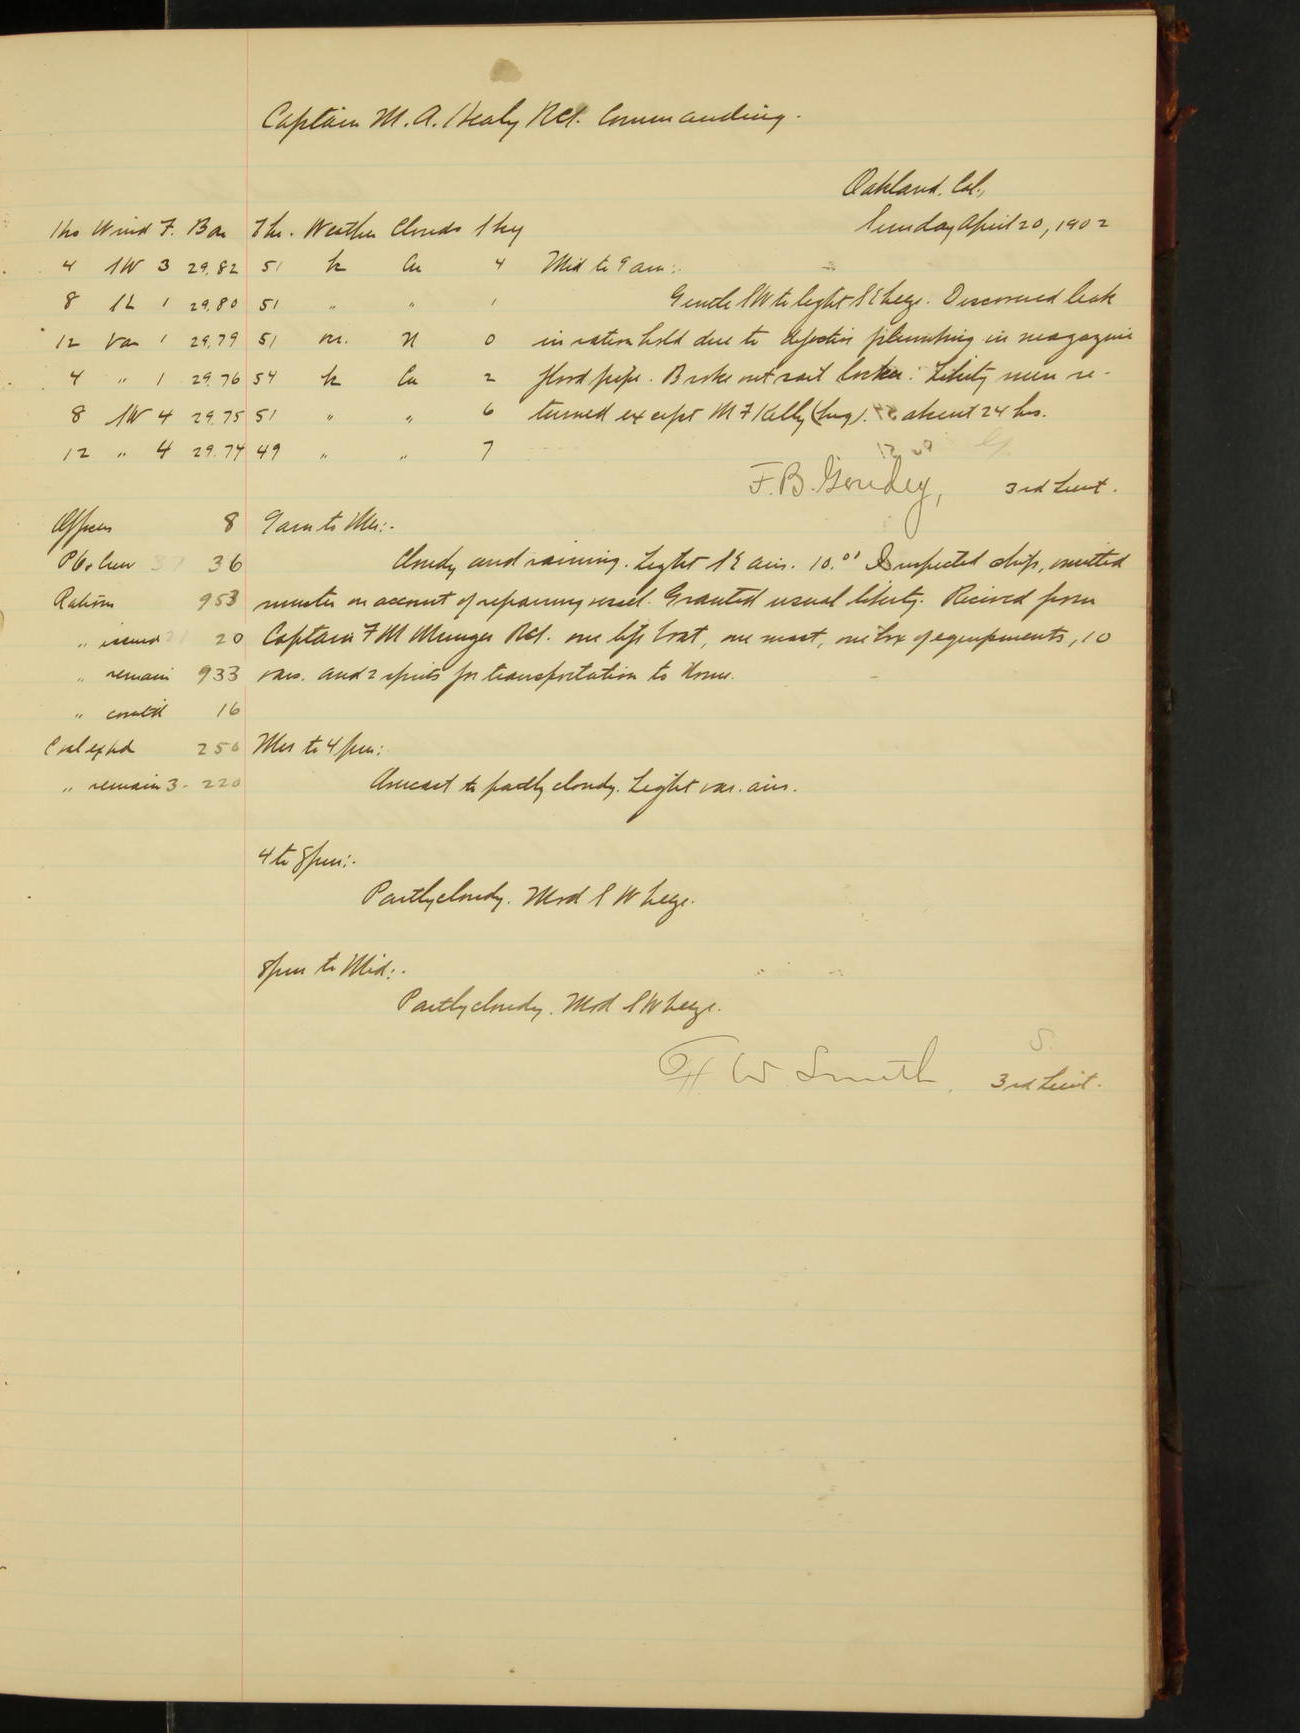 Captain M. A. Healy RCS. Commanding.
Oakland, Cal.,
Sunday April 20, 1902
Hrs Wind F. Bar Ther. Weather Clouds Sky
4 SW 3 29.82 51 bc Cu 4 Mid to 9 am:
8 SE 1 29.80 51 " " 1 Gentle SW to light SE breeze. Discovered leak
12 Var 1 29.79 51 or. N 0 in ration hold due to defective plumbing in magazine
4 " 1 29.76 54 bc Cu 2 flood pipe. Broke out sail locker. Liberty men re-
8 SW 4 29.75 51 " " 6 turned except M F Kelly absent 24 hrs.
12 " 4 29.74 49 " " 7
F. B. Goudey, 3rd Lieut.
Officers 8 9 am to Mer:-
P.O. & Crew 36 Cloudy and raining. Light SE airs. 10.01 Inspected ship, omitted
Rations 953 muster on account of repairing vessel. Granted usual liberty. Received from
" issued 20 Captain F M Munger RCS. one life boat, one mast, one box of equipments, 10
" remain 933 oars. and 2 sprits for transportation to Nome.
" com'td 16
Coal exp'd 250 Mer to 4 pm:
" remain 3- 220 Overcast to partly cloudy. Light var. airs.
4 to 8 pm:-
Partly cloudy. Mod S W breeze.
8 pm to Mid:-
Partly cloudy. Mod S W breeze.
S.
H W Smith, 3rd Lieut.